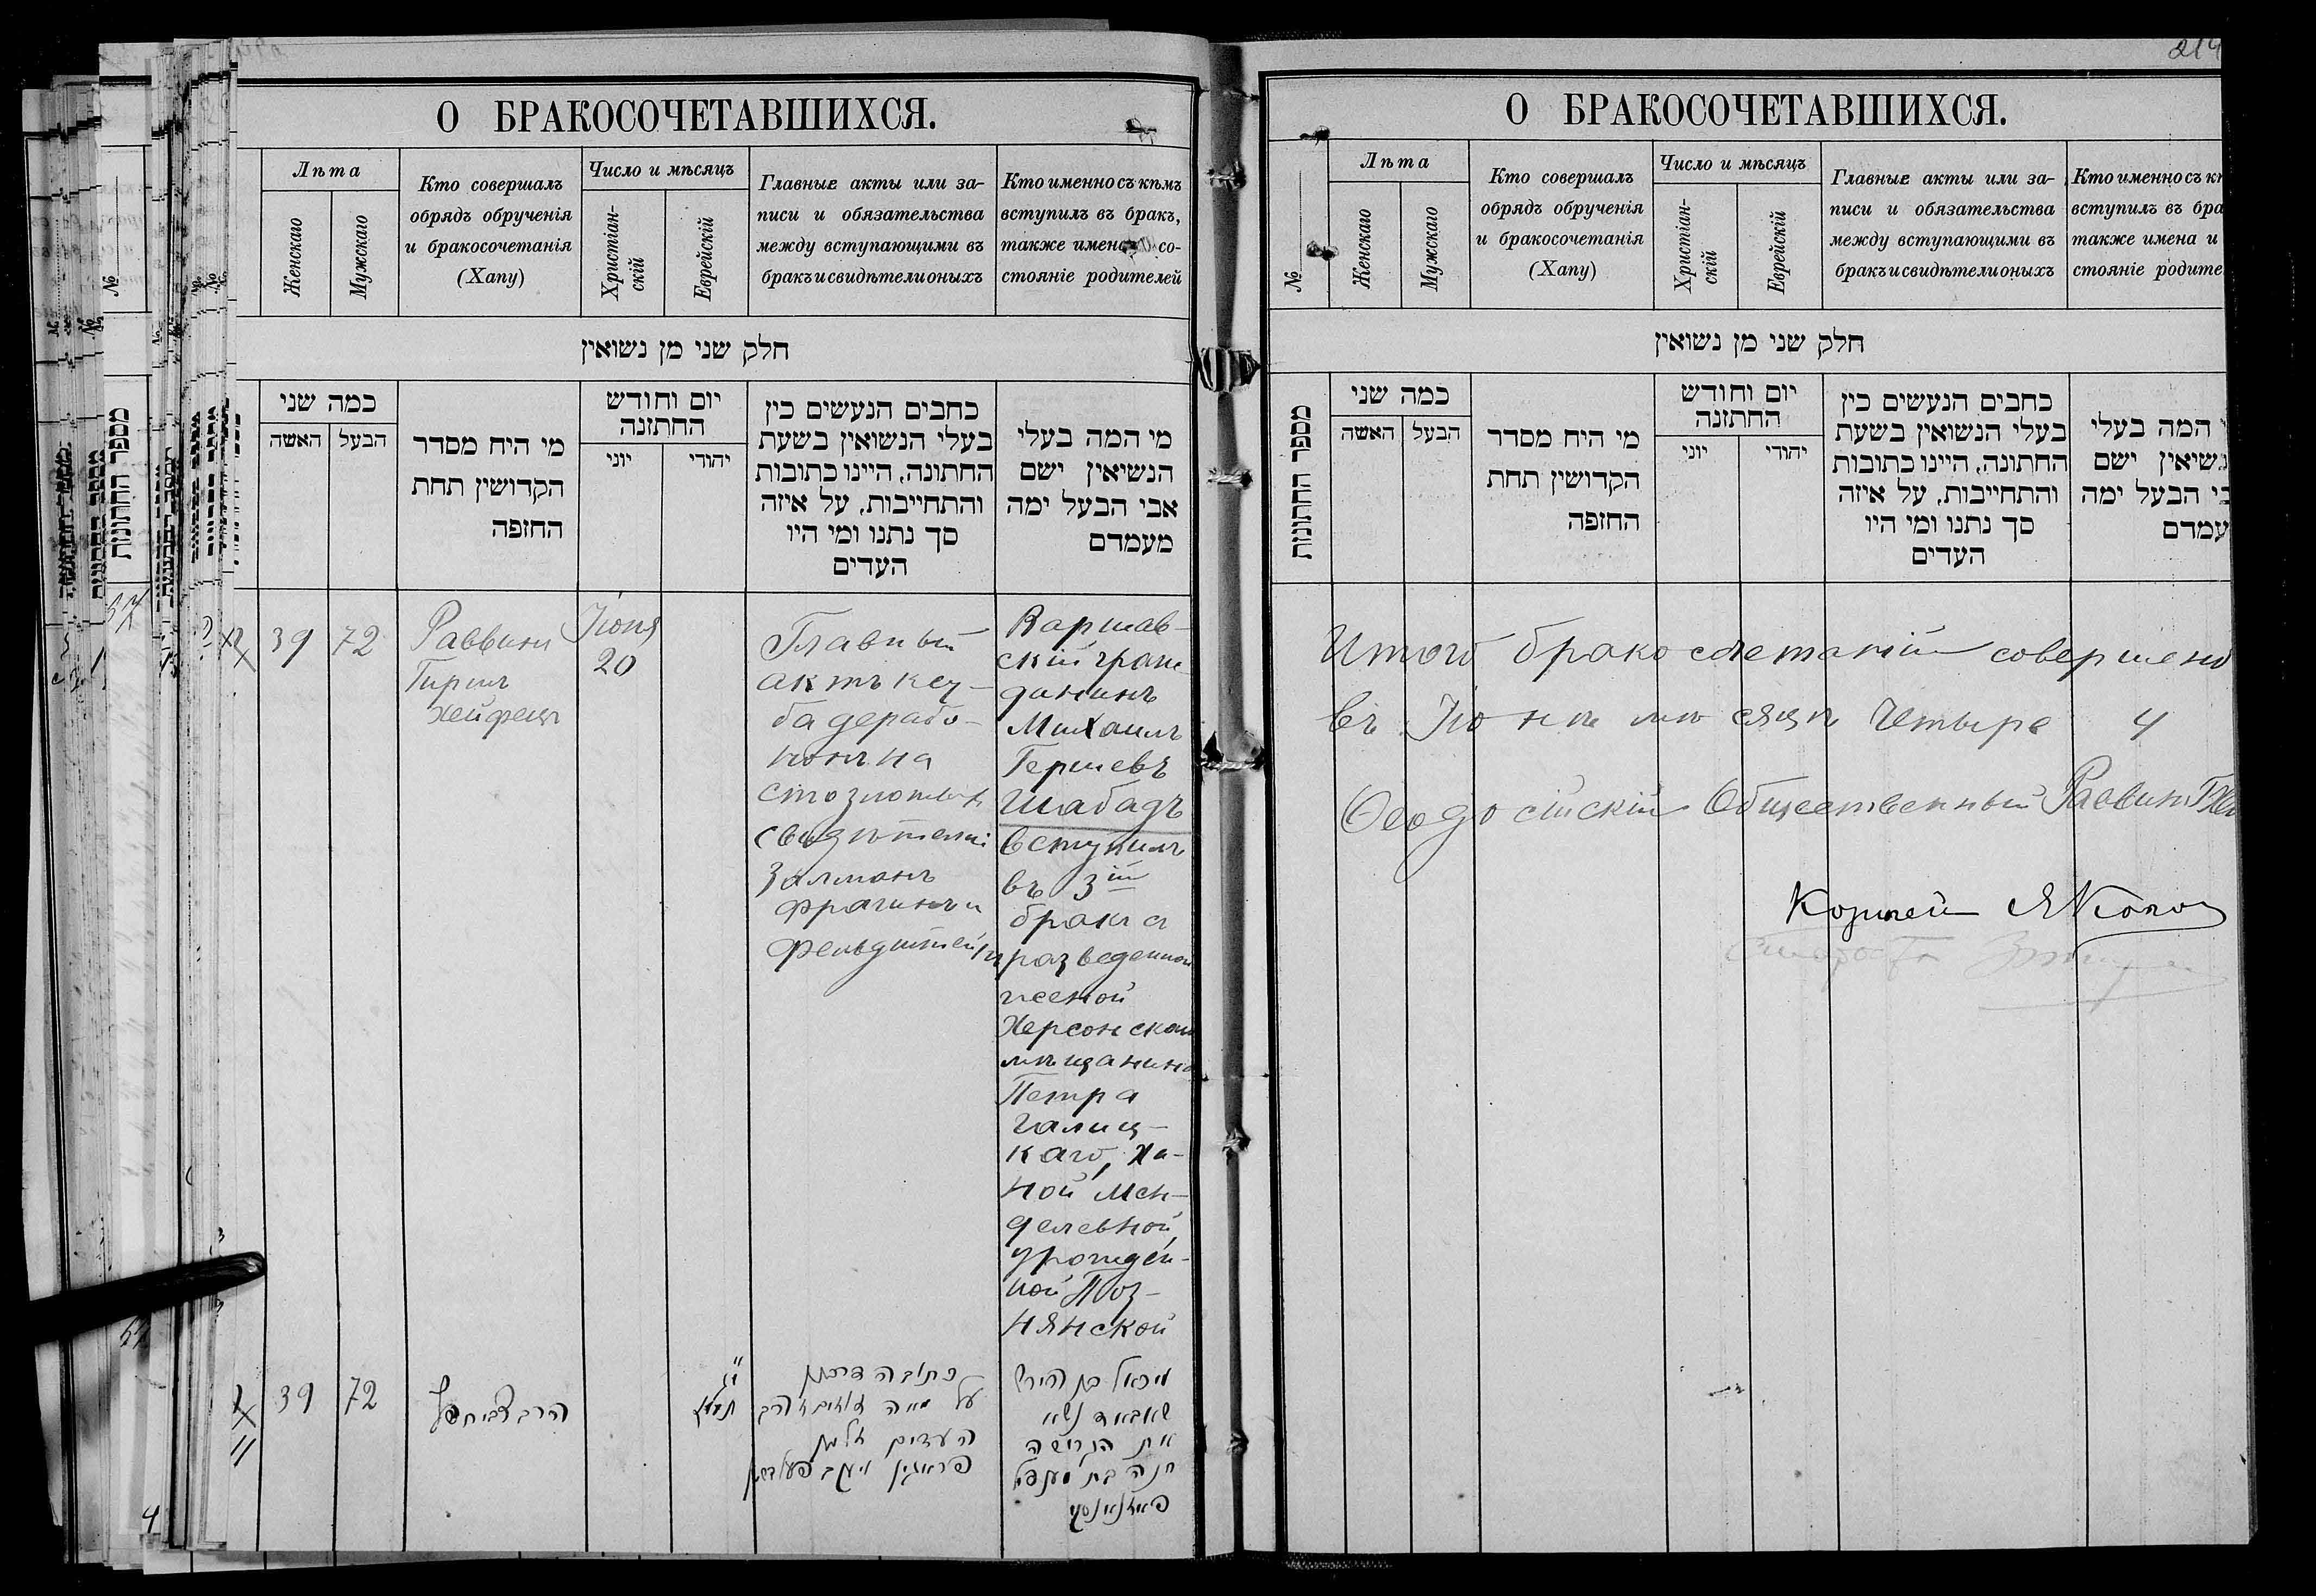 214
О БРАКОСОЧЕТАВШИХСЯ.
№
Лѣта
Женскаго
Мужскаго
Кто совершалъ
обрядъ обрученія
и бракосочетанія
(Хапу)
Число и мѣсяцъ
Христіан-
скій
Еврейскій
Главные акты или за-
писи и обязательства
между вступающими въ
бракъ и свидѣтели оныхъ
Кто именно съ кѣмъ
вступилъ въ бракъ,
также имена и со-
стояніе родителей
חלק שני מן נשואין
מספר החתונות
כמה שני
האשה
הבעל
מי היח מסדר
הקדושין תחת
החזפה
יום וחודש
החתזנה
יוני
יהודי
כחבים הנעשים כין
בעלי הנשואין בשעת
החתונה, היינו כתובות
והתחייבות, על איזה
סך נתנו ומי היו
העדים
מי המה בעלי
הנשיאין ישם
אבי הבעל ימה
מעמדם
39
72
Раввинъ
Гиршъ
Хейфецъ
Іюня
20
Главный
актъ кет-
ба дерабо-
нонъ на
сто злотыхъ
свидѣтели
Залманъ
Фрагинъ и
Фельдштейнъ
Варшав-
скій граж-
данинъ
Михаилъ
Гершевъ
Шабадъ
вступилъ
въ 3ій
бракъ съ
разведенной
женой
Херсонскаго
мѣщанина
Петра
Галиц-
каго, Ха-
ной Мен-
делевной,
урожден-
ной Поз-
нянской
39
72
כתובה דרבנן
על מאה
העדים זלמן
פראגין
מיכאל בן הירש
שאבאד נשא
את הגרושה
חנה בת מענדיל
О БРАКОСОЧЕТАВШИХСЯ.
№
Лѣта
Женскаго
Мужскаго
Кто совершалъ
обрядъ обрученія
и бракосочетанія
(Хапу)
Число и мѣсяцъ
Христіан-
скій
Еврейскій
Главные акты или за-
писи и обязательства
между вступающими въ
бракъ и свидѣтели оныхъ
Кто именно съ к
вступилъ въ бра
также имена и
стояніе родите
חלק שני מן נשואין
מספר החתונות
כמה שני
האשה
הבעל
מי היח מסדר
הקדושין תחת
החזפה
יום וחודש
החתזנה
יוני
יהודי
כחבים הנעשים כין
בעלי הנשואין בשעת
החתונה, היינו כתובות
והתחייבות, על איזה
סך נתנו ומי היו
העדים
המה בעלי
נשיאין ישם
בי הבעל ימה
עמדם
Итого бракосочетаній совершено
въ Іюнѣ мѣсяцѣ четыре 4
Ѳеодосійскій Общественный Раввинъ Г Хей
Казначей
Староста